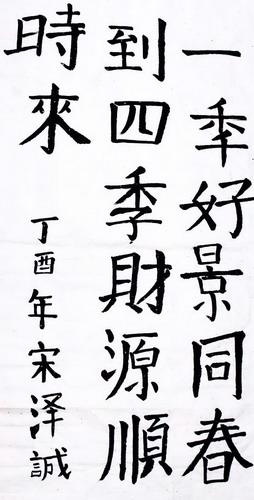 一秊好景同春
到四季財源順
時來
丁酉年宋泽誠